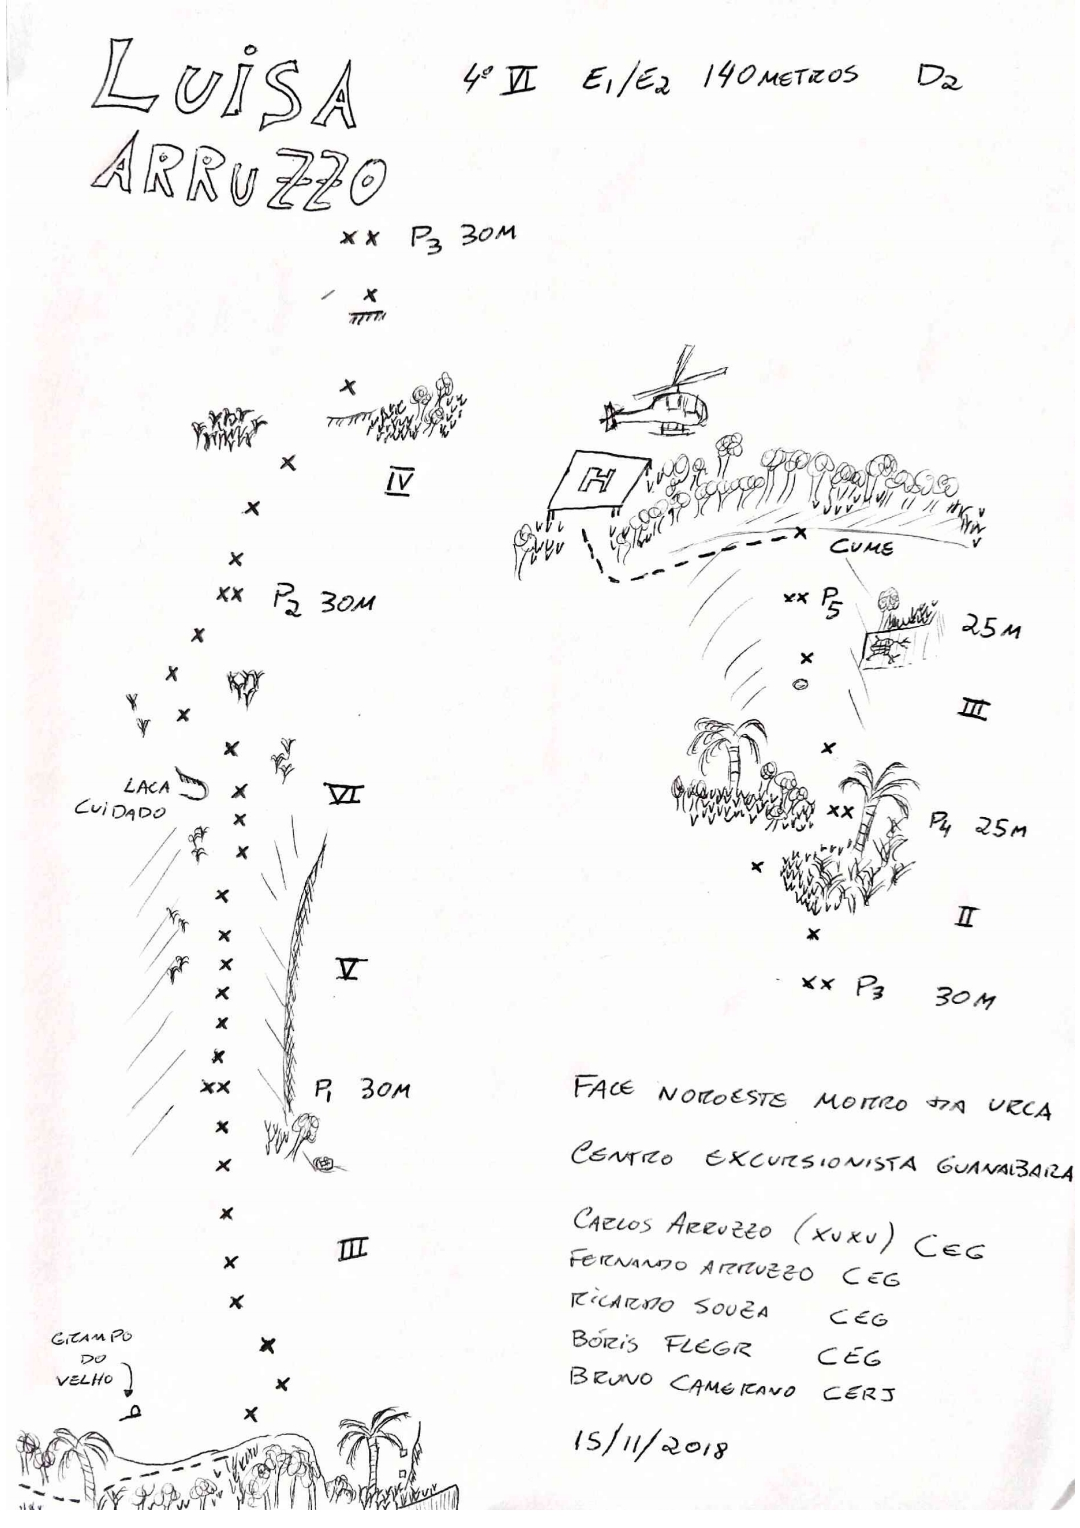 LUISA
ARRUZZO
4º VI E1/E2 140 METROS D2
P3 30M
IV
P2 30M
LACA
CUIDADO
VI
V
P1 30M
III
GRAMPO
DO
VELHO
H
CUME
P5
25M
III
P4 25M
II
P3 30M
FACE NOROESTE MORRO DA URCA
CENTRO EXCURSIONISTA GUANABARA
CARLOS ARRUZZO (XUXU) CEG
FERNANDO ARRUZZO CEG
RICARDO SOUZA CEG
BÓRIS FLEGR CEG
BRUNO CAMERANO CERJ
15/11/2018